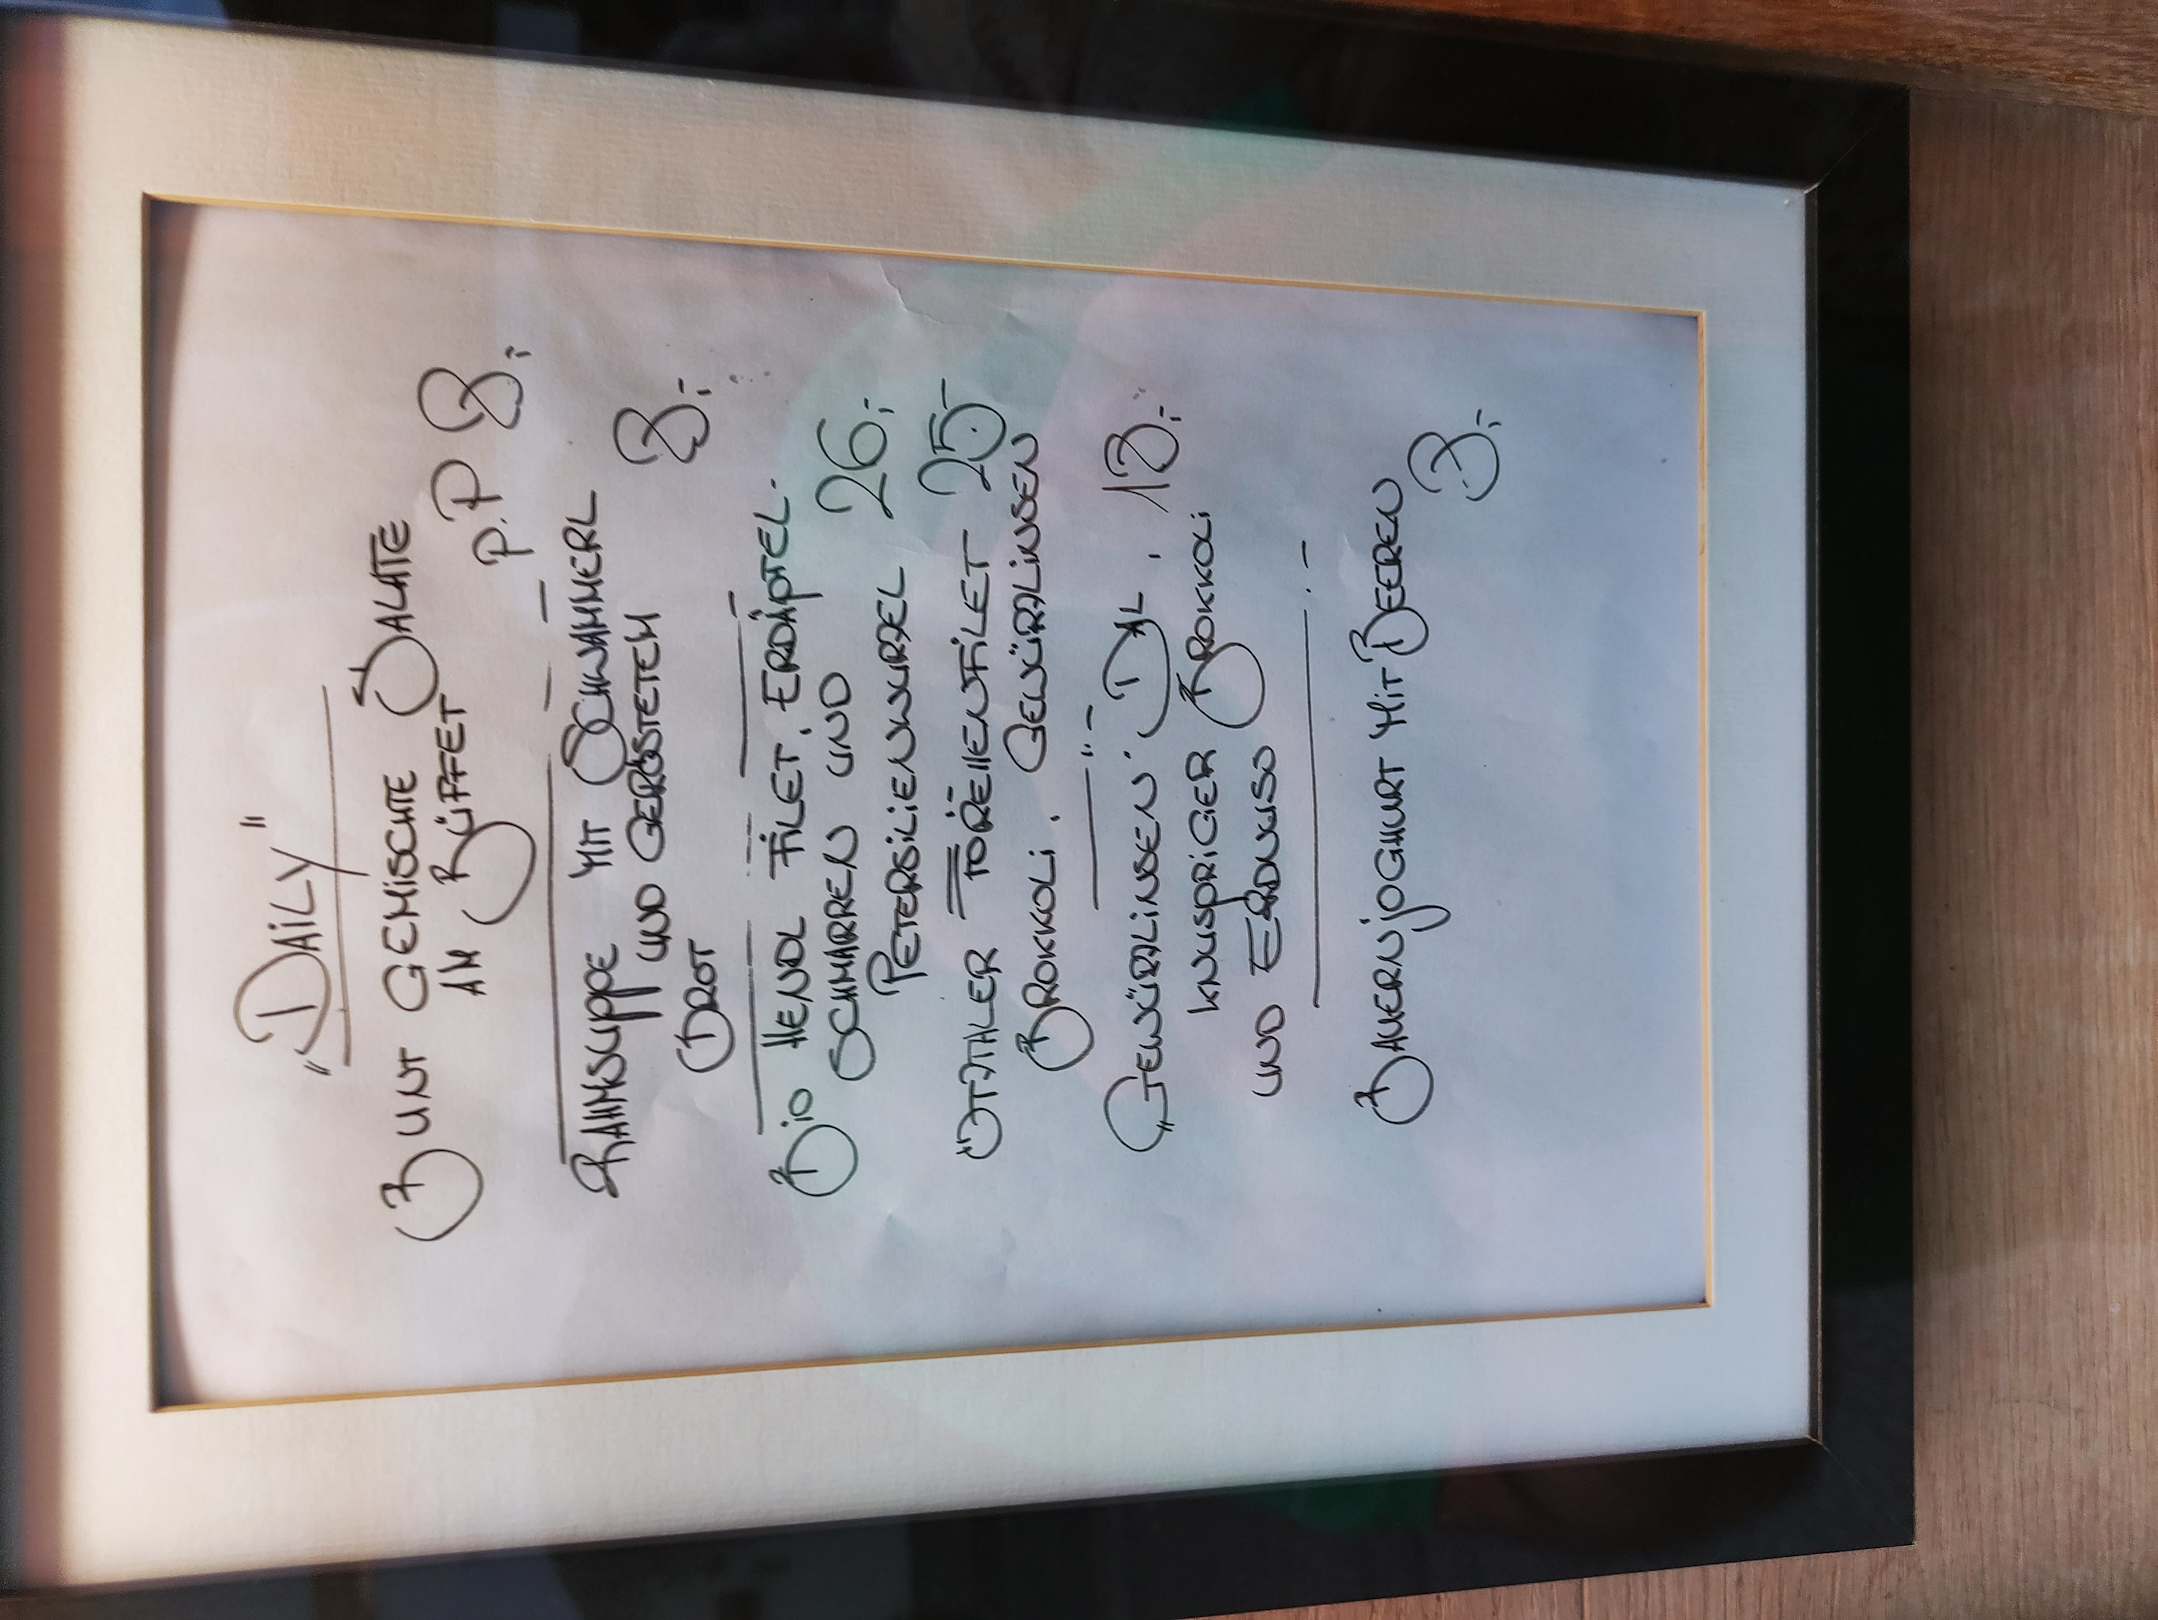 "DAiLY"
BUNT GEMiSCHTE SALATE
AM BÜFFET
P.P 8,-
RAHMSUPPE MIT SCHWAMMERL
UND GERÖSTETEM
BROT 8,-
BiO HENDL FiLET, ERDÄPFEL-
SCHMARREN UND 26,-
PETERSiLiENWURZEL
ÖTZTALER FORELLENFiLET 25,-
BROKKOLi, GEWÜRZLiNSEN
"GEWÜRZLiNSEN" DAL, 18,-
KNUSPRiGER BROKKOLi
UND ERDNUSS
BAUERNjOGHURT MiT BEEREN
8,-